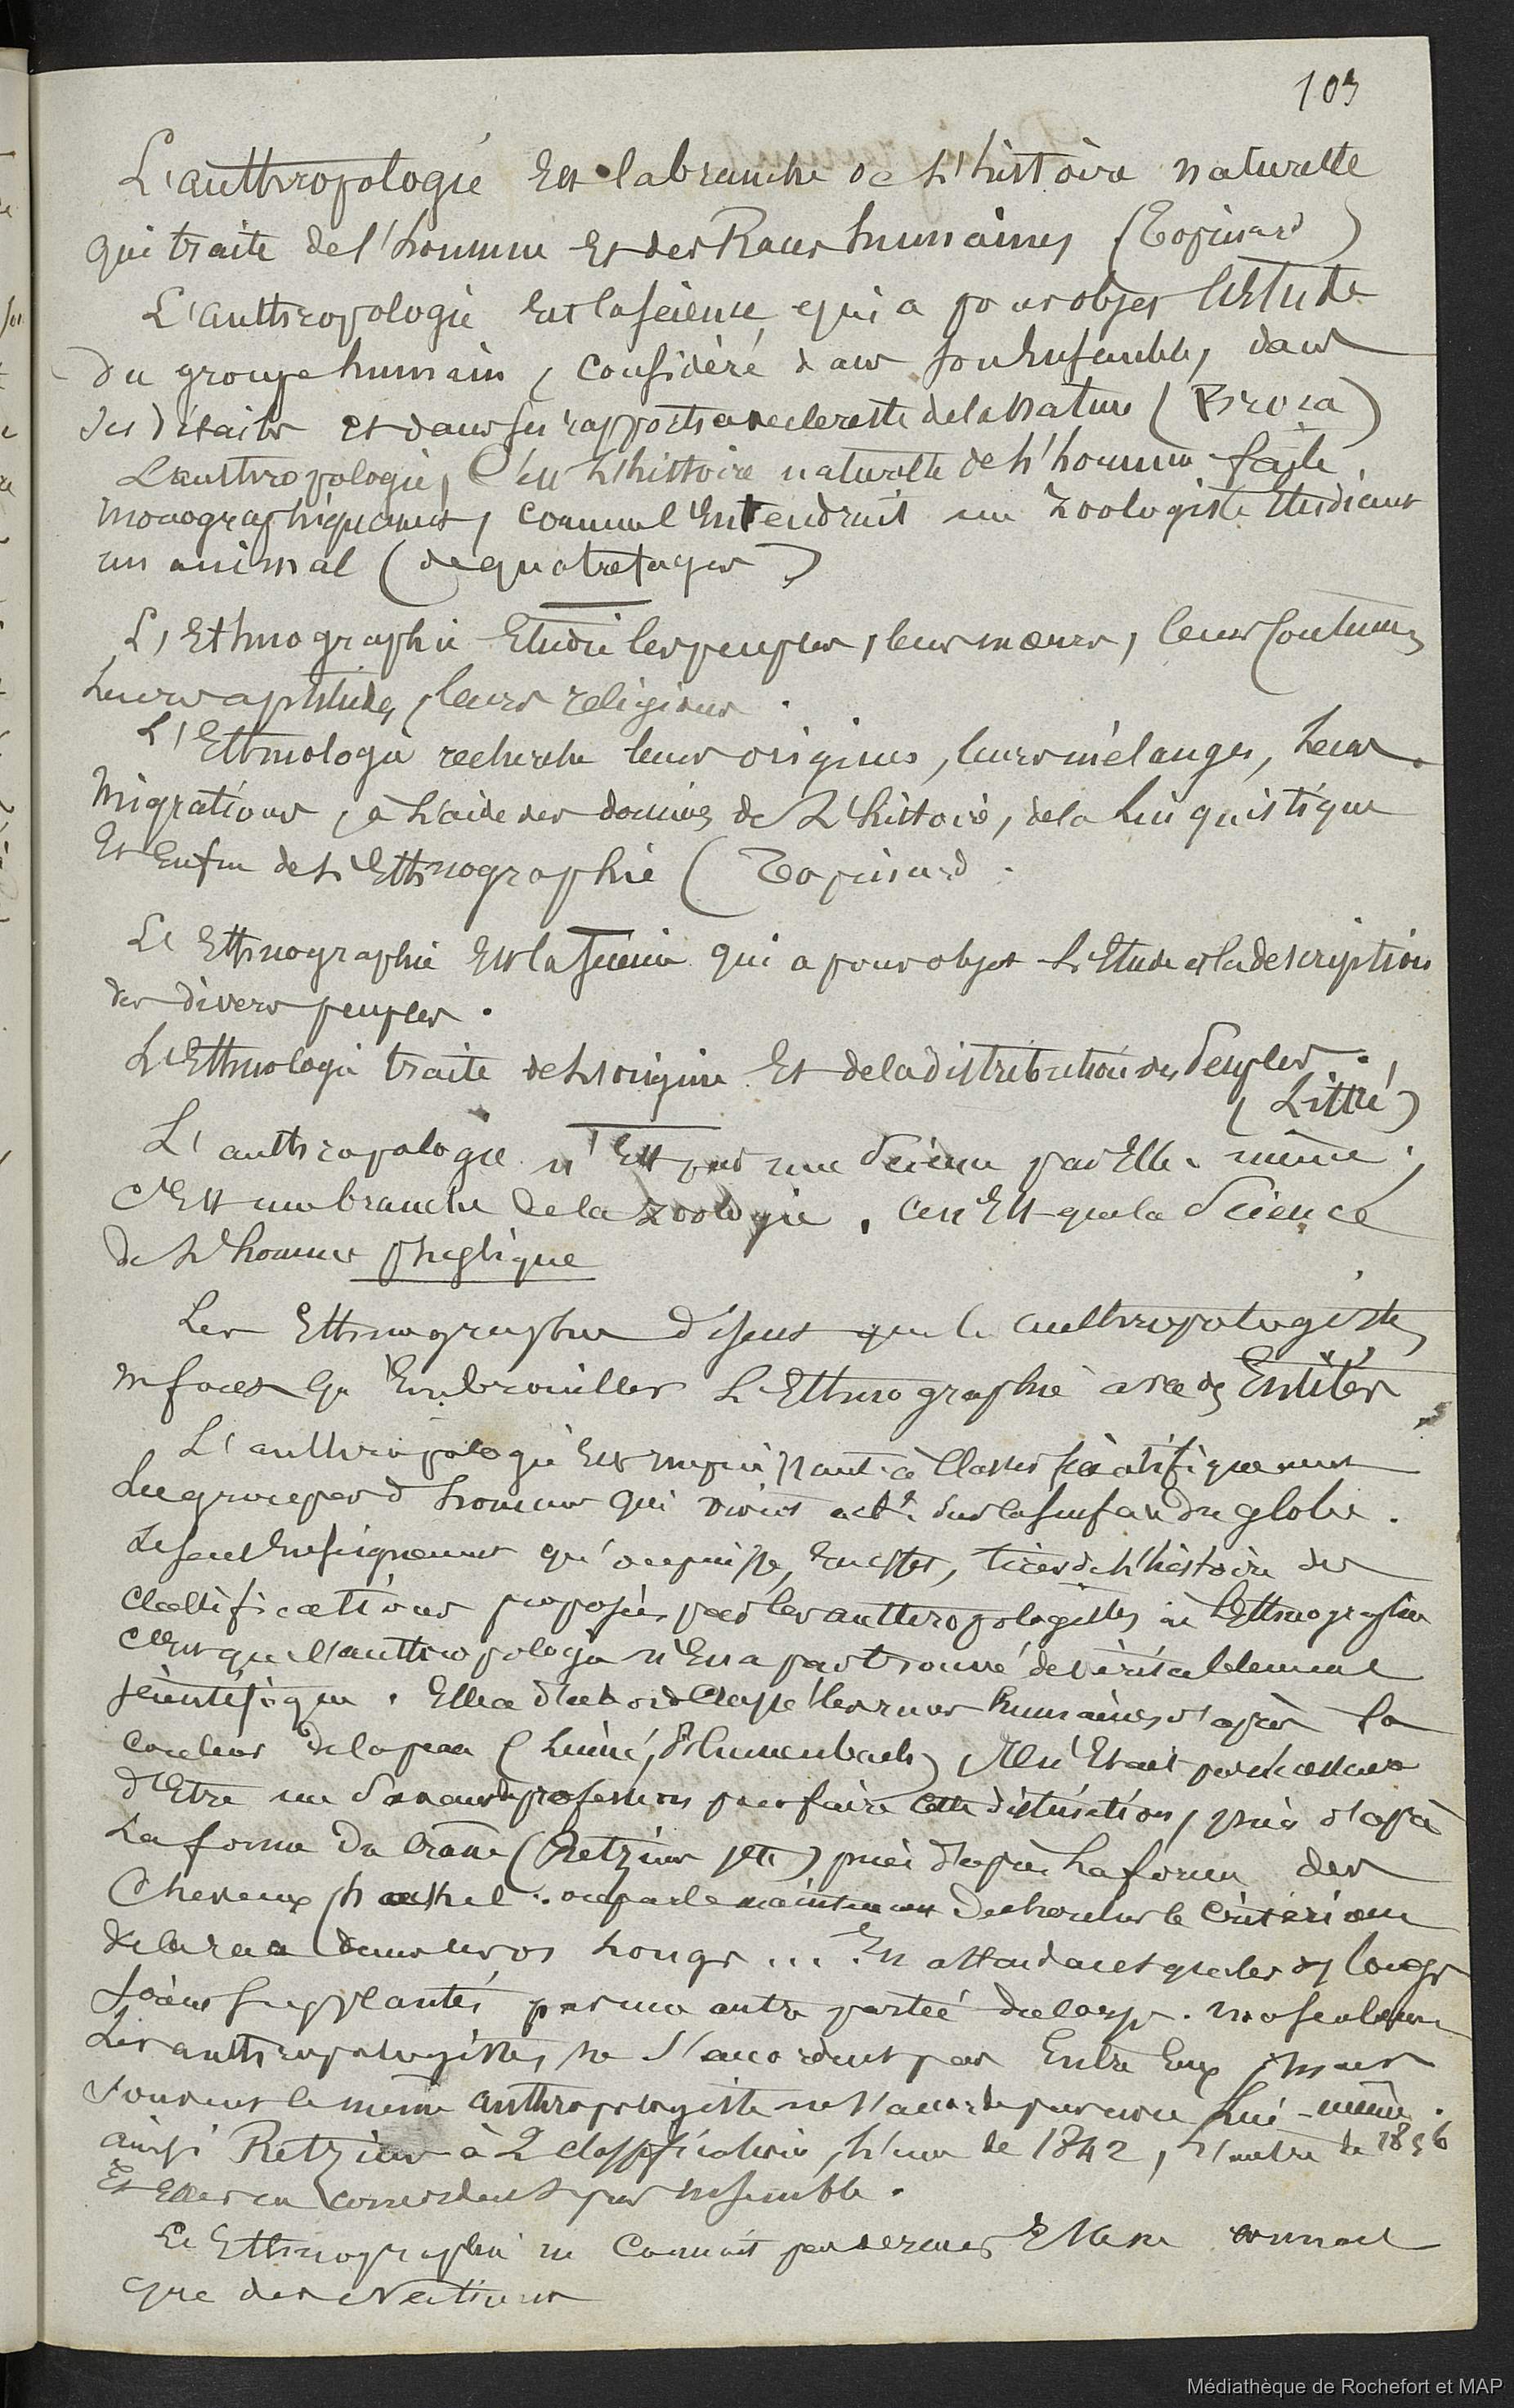 103
L'anthropologie Est la branche de L'histoire naturelle
qui traite de l'homme Et des Races humaines (Topinard)
L'anthropologie Est la science qui a pour objet L'Etude
du groupe humain, considéré dans son Ensemble, dans
ses détails et dans ses rapports avec le reste de la Nature (Broca)
L'anthropologie, C'est L'histoire naturelle de L'homme faite
monographiquement, comme l'Entendrait un Zoologiste Etudiant
un animal (de quatrefages)
L'Ethnographie Etudie les peuples, leurs mœurs, leurs Coutumes
Leurs aptitudes, leurs religions.
L'Ethnologie recherche leurs origines, leurs mélanges, Leurs
Migrations, à L'aide des données de L'histoire, de la Linguistique
Et Enfin de L'Ethnographie (Topinard.
L'Ethnographie Est la Science qui a pour objet L'Etude et la description
des divers peuples.
L'Ethnologie traite de L'origine Et de la distribution des Peuples.
(Littré)
L'anthropologie n'Est pas une Science par Elle-même;
C'Est une branche de la zoologie. Ce n'Est que la Science
de L'homme physique
Les Ethnographes disent que les anthropologistes
ne font qu'Embrouiller L'Ethnographie avec des Entités
L'anthropologie Est impuissante à Classer scientifiquement
Les groupes d'hommes qui vivent act.t sur la surface du globe.
Le seul Enseignement qu'on puisse, En effet, tirer de L'histoire des
classifications proposées par les anthropologistes à L'Ethnographie
C'Est que l'anthropologie n'En a pas trouvé de véritablement
scientifique. Elle a d'abord Classé les races humaines d'après la
Couleur de la peau (Linné, Blumenbach), Il n'Etait pas nécessaire
d'Etre un Savant de profession pour faire Cette distinction, puis d'après
La forme du Crâne (Retzius etc) puis d'après La forme des
Cheveux (haeckel.. on parle maintenant de chercher le Critérium
de la race dans un os long... En attendant que les os longs
soient supplantés par une autre partie du corps. non seulement
Les anthropologistes, ne s'accordent pas Entre Eux, mais
souvent le même anthropologiste ne s'accorde pas avec Lui-même.
ainsi Retzius à 2 classifications, L'une de 1842, L'autre de 1856
Et Elles ne concordent pas Ensemble.
L'Ethnographie ne Connaît pas de races Elle ne connaît
que des Nations
Médiathèque de Rochefort et MAP